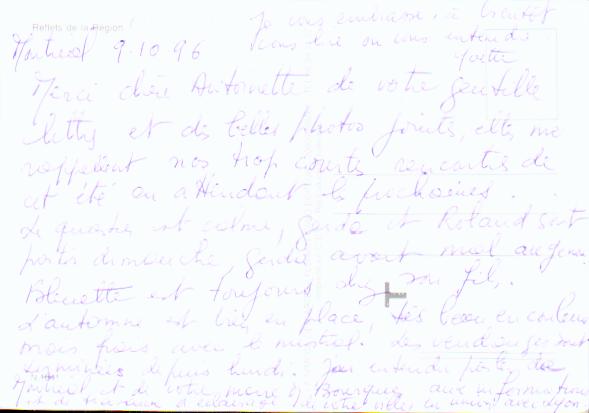 Reflets de la Région
Je vous embrasse, à bientôt
vous lire ou vous entendre
Yvette
Montréal 9.10.96
Merci chère Antoinette de votre gentille
lettre et des belles photos jointes, elles me
rappellent nos trop courtes rencontres de
cet été en attendant les prochaines.
Le quartier est calme, Gerda et Roland sont
partis dimanche, Gerda avait mal au genou.
Blinette est toujours chez son fils.
L'automne est bien en place, très beau en couleurs
mais frais avec le mistral. Les vendanges sont
terminées depuis lundi. J'ai entendu parler de
et de votre aux informations